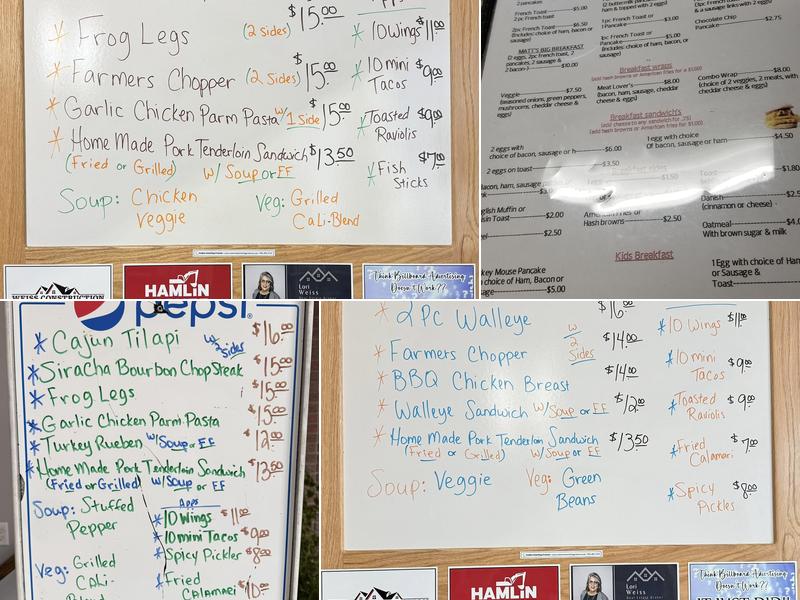 $15.00
* Frog Legs (2 Sides)
* Farmers Chopper (2 Sides) $15.00
* Garlic Chicken Parm Pasta w/ 1 Side $15.00
* Home Made Pork Tenderloin Sandwich $13.50
(Fried or Grilled) w/ Soup or FF
Soup: Chicken
Veggie
Veg: Grilled
Cali-Blend
* 10 Wings $11.00
* 10 mini
Tacos $9.00
* Toasted
Raviolis $9.00
* Fish
Sticks $7.00
WEISS CONSTRUCTION
HAMLIN
Lori
Weiss
Think Billboard Advertising
Doesn't Work??
2 pancakes
French Toast $5.00
2 pc French toast
$6.50
(Includes: choice of ham, bacon, or sausage)
MATT'S BIG BREAKFAST
(2 eggs, 2pc french toast, 2
pancakes, 2 sausage &
2 bacon) $10.00
ham & topped with 2 eggs)
1pc French Toast or
Pancake $3.00
1pc French Toast $5.00
(Includes: choice of ham, bacon, or
sausage)
sausage links with 2 eggs)
Chocolate Chip
Pancake $2.75
Breakfast wraps
(add hash browns or American fries for $1.00)
Veggie $7.50
(seasoned onions, green peppers,
mushrooms, cheddar cheese &
eggs)
Meat Lover's $8.00
(bacon, ham, sausage, cheddar
cheese & eggs)
Combo Wrap $8.00
(choice of 2 veggies, 2 meats, with
cheddar cheese & eggs)
Breakfast sandwich's
(add cheese to any sandwich for .75)
(add hash browns or American fries for $1.00)
2 eggs with
choice of bacon, sausage or h $6.00
1 egg with choice
Of bacon, sausage or ham $4.50
2 eggs on toast $3.50
Breakfast sides
bacon, ham, sausage
1 egg $1.50
Toast $1.80
English Muffin or
Toast $2.00
American fries or
Hash browns $2.50
Danish $2.5
(cinnamon or cheese)
$2.50
Oatmeal $4.0
With brown sugar & milk
Kids Breakfast
key Mouse Pancake
choice of Ham, Bacon or
$5.00
1 Egg with choice of Ham
or Sausage &
Toast
pepsi
* Cajun Tilapi w/ 2 Sides $16.00
* Siracha Bourbon Chop Steak $15.00
* Frog Legs $15.00
* Garlic Chicken Parm Pasta $15.00
* Turkey Rueben w/ Soup or FF $12.00
* Home Made Pork Tenderloin Sandwich $13.50
(Fried or Grilled) w/ Soup or FF
Soup: Stuffed
Pepper
Veg: Grilled
Cali-
Blend
Apps
* 10 Wings $11.00
* 10 mini Tacos $9.00
* Spicy Pickles $8.00
* Fried
Calamari $10.00
* 2 Pc Walleye $16.00
* Farmers Chopper w/ 2 Sides $14.00
* BBQ Chicken Breast $14.00
* Walleye Sandwich w/ Soup or FF $12.00
* Home Made Pork Tenderloin Sandwich $13.50
(Fried or Grilled) w/ Soup or FF
Soup: Veggie
Veg: Green
Beans
* 10 Wings $11.00
* 10 mini
Tacos $9.00
* Toasted
Raviolis $9.00
* Fried
Calamari $7.00
* Spicy
Pickles $8.00
HAMLIN
Lori
Weiss
Think Billboard Advertising
Doesn't Work??
IT JUST DID!!